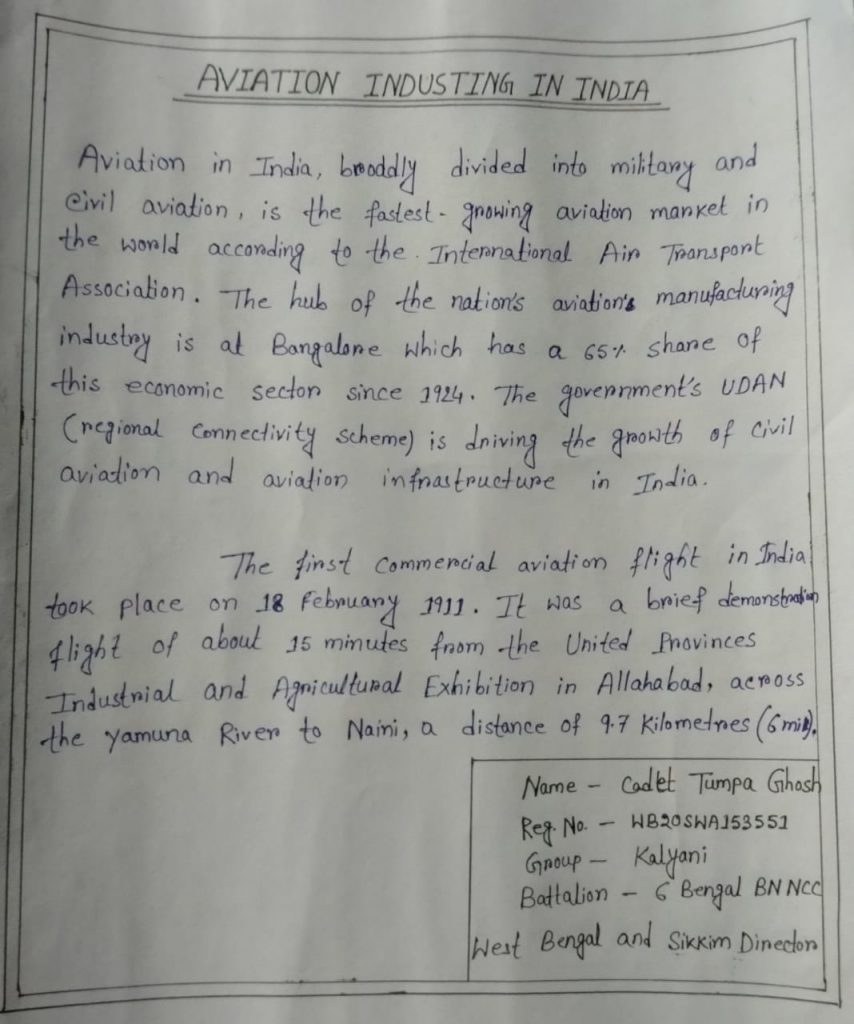 AVIATION INDUSTING IN INDIA
Aviation in India, brooddly divided into military and
Civil aviation, is the fastest-growing aviation market in
the world according to the International Air Transport
Association. The hub of the nation's aviation's manufacturing
industry is at Bangalore which has a 65% share of
this economic sector since 1924. The government's UDAN
(regional Connectivity scheme) is driving the growth of civil
aviation and aviation infrastructure in India.
The first commercial aviation flight in India
took place on 18 February 1911. It was a brief demonstration
flight of about 15 minutes from the United Provinces
Industrial and Agricultural Exhibition in Allahabad, across
the Yamuna River to Naini, a distance of 9.7 Kilometres (6 mi).
Name - Cadet Tumpa Ghosh
Reg. No. - WB20SWA153551
Group - Kalyani
Battalion - 6 Bengal BN NCC
West Bengal and Sikkim Director